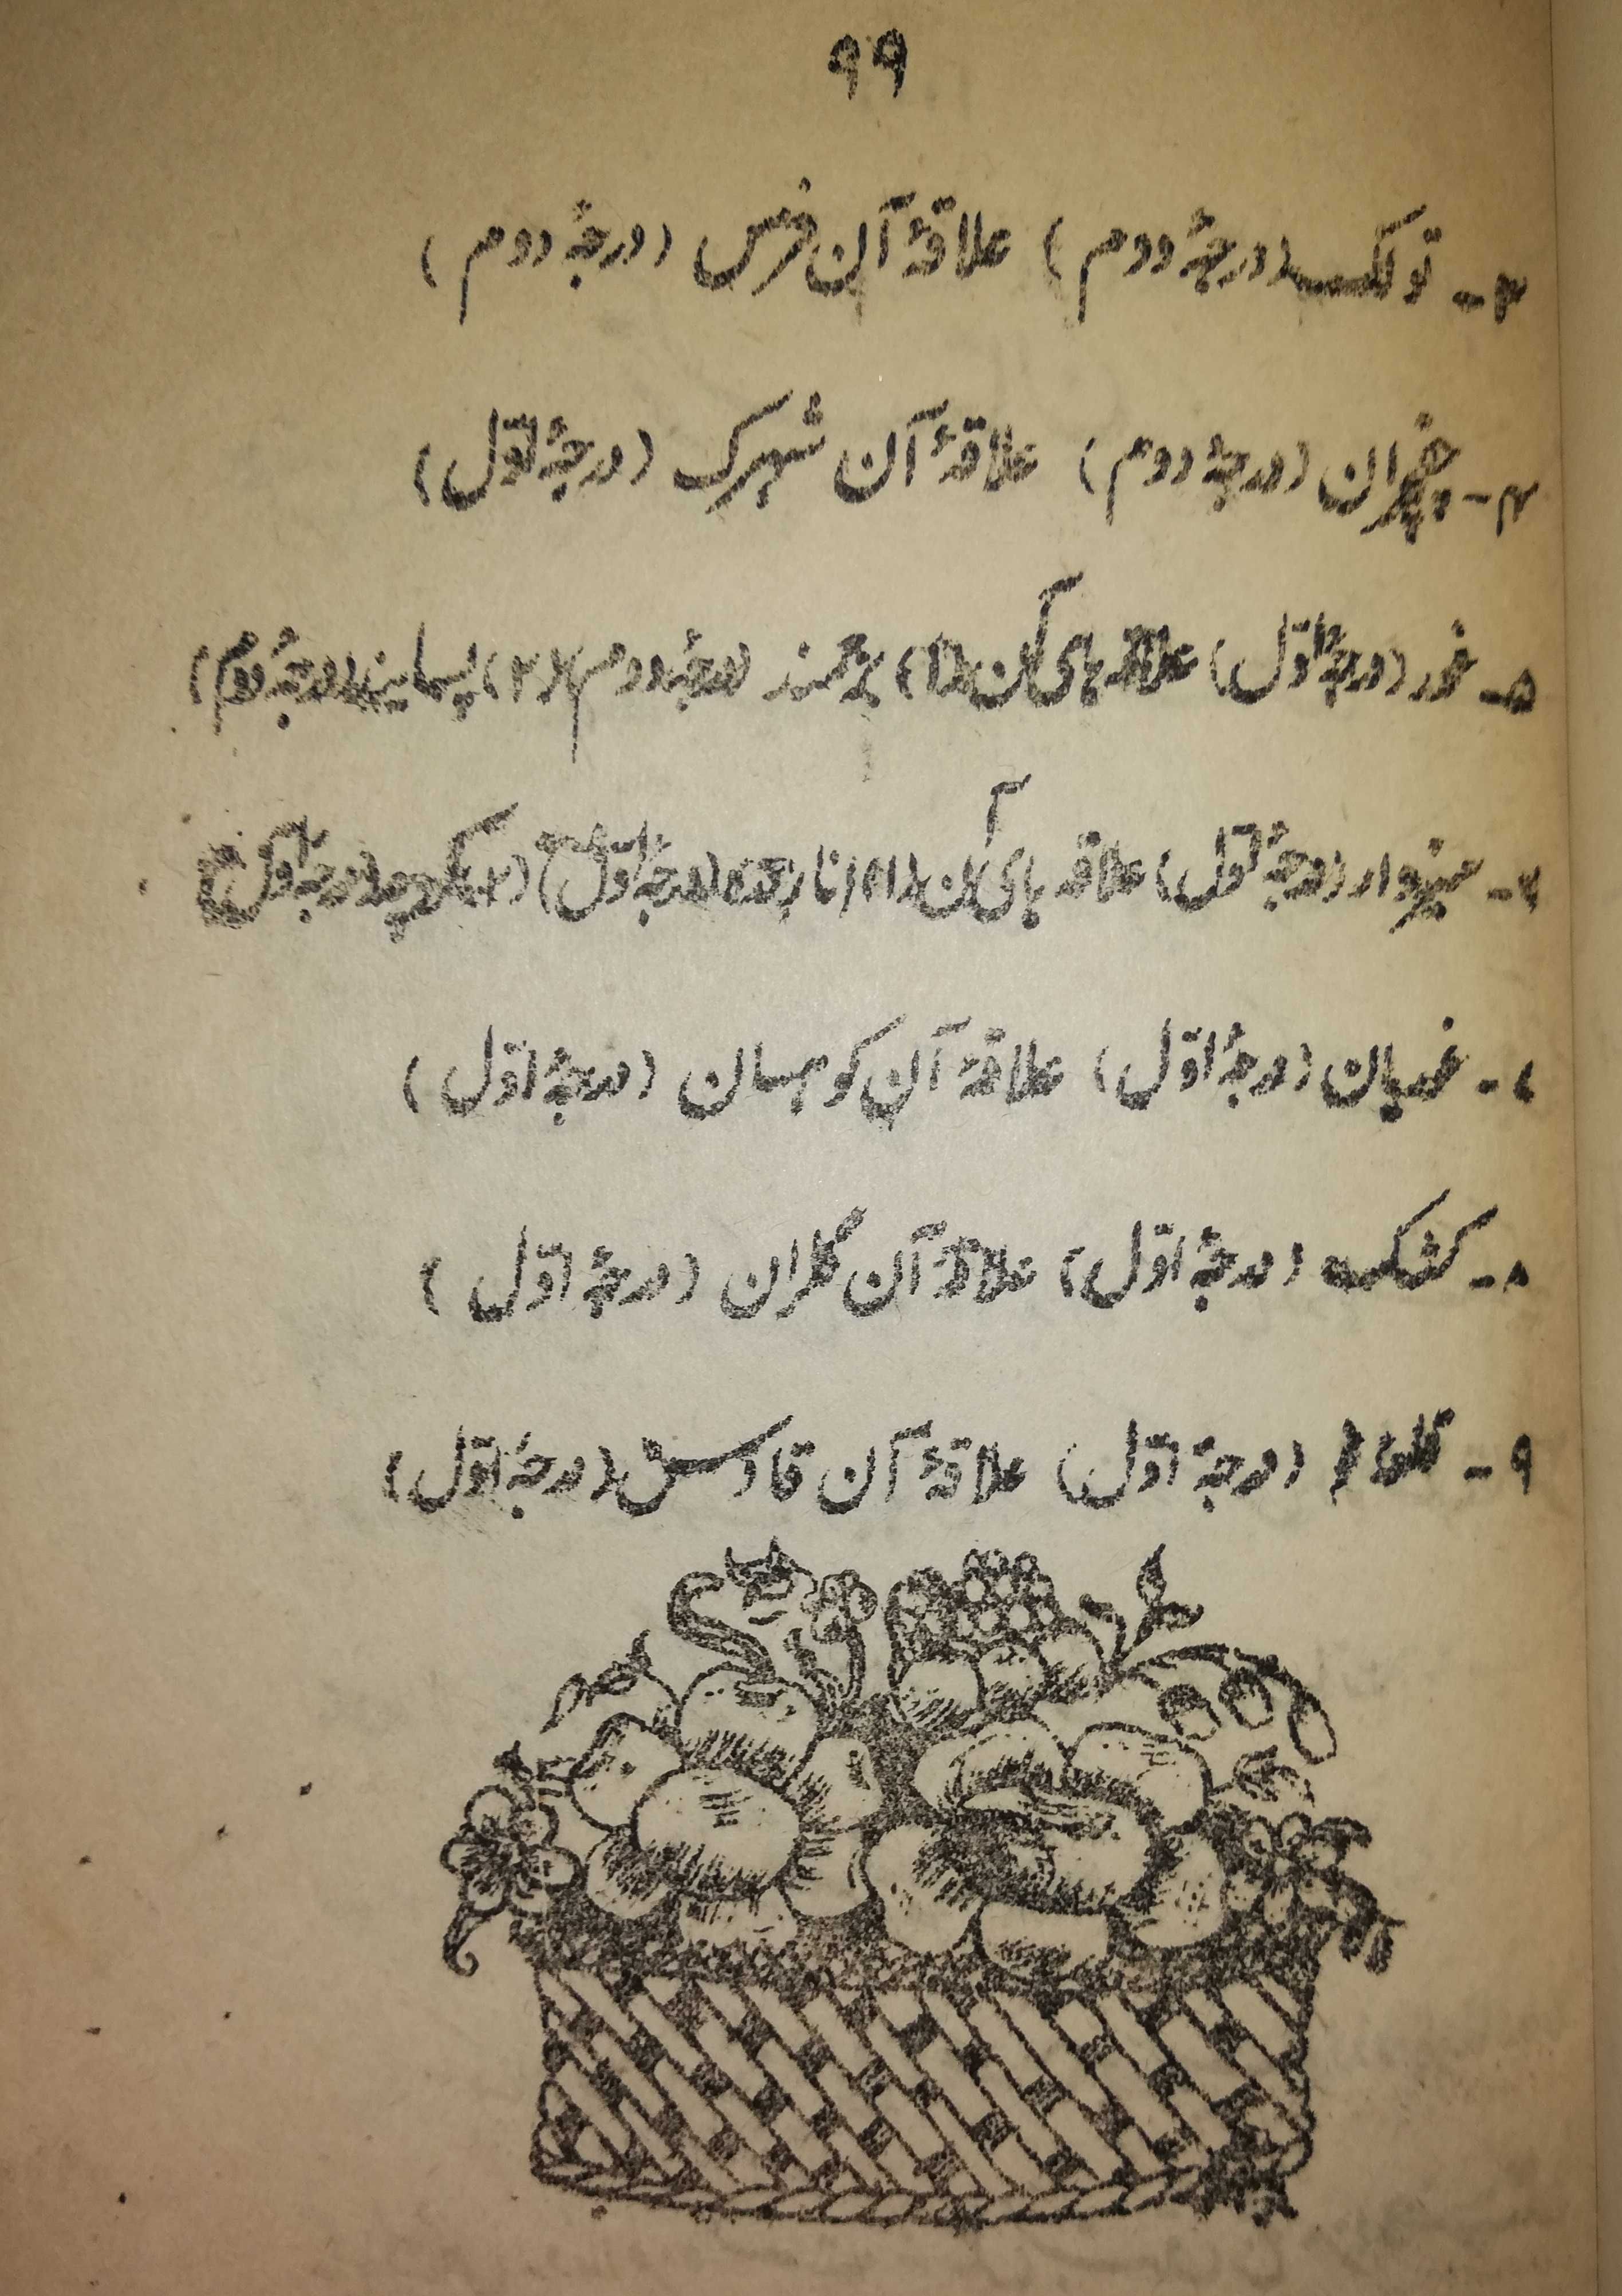 ۹۹
۳- تولک (درجهٔ دوم) علاقهٔ آن فرس (درجهٔ دوم)
۴- چغچران (درجهٔ دوم) علاقهٔ آن شهرک (درجهٔ اوّل)
۵- غور (درجهٔ اوّل) علاقه های آن (۱) پرچمند (درجهٔ دوم) (۲) پسابند (درجهٔ دوم)
۶- سبزوار (درجهٔ اوّل) علاقه های آن (۱) اناردره (درجهٔ اوّل) (۲) (درجهٔ اوّل)
۷- غوریان (درجهٔ اوّل) علاقهٔ آن کوهسان (درجهٔ اوّل)
۸- کشک (درجهٔ اوّل) علاقهٔ آن گلران (درجهٔ اوّل)
۹- (درجهٔ اوّل) علاقهٔ آن قادس (درجهٔ اوّل)